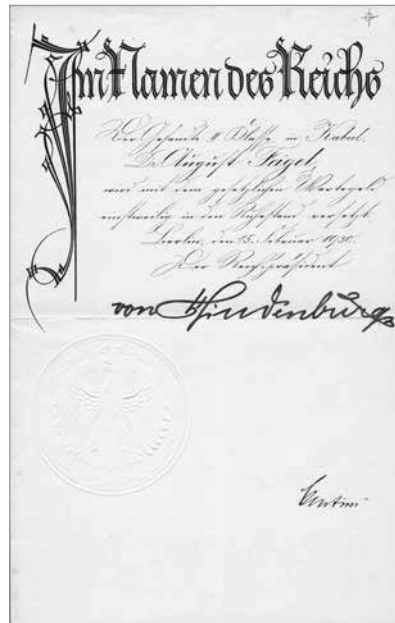 Im Namen des Reichs
Der Gesandte Klasse in Kabul,
Dr. August Feigel,
wird mit dem gesetzlichen Wartegeld
einstweilig in den Ruhestand versetzt.
Berlin, den 25. Februar 1930.
Der Reichspräsident
von Hindenburg
Curtius